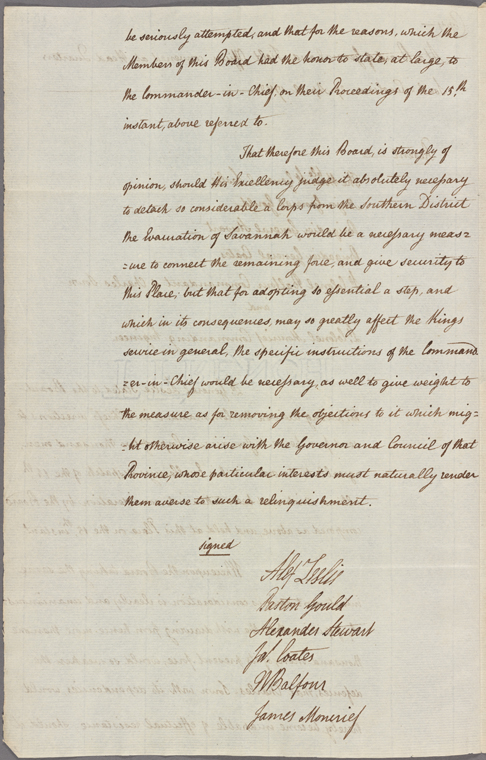 be seriously attempted, and that for the reasons, which the
Members of this Board had the honor to state, at large, to
the Commander-in-Chief, on their Proceedings of the 15th
instant, above referred to.
That therefore this Board, is strongly of
opinion, should His Excellency judge it absolutely necessary
to detach so considerable a Corps from the Southern District
the Evacuation of Savannah would be a necessary meas=
=ure to connect the remaining force, and give security to
this Place; but that for adopting so essential a step, and
which in its consequences, may so greatly affect the Kings
service in general, the specific instructions of the Command
=er-in-Chief would be necessary, as well to give weight to
the measure as for removing the objections to it which mig=
=ht otherwise arise with the Governor and Council of that
Province, whose particular interests must naturally render
them averse to such a relinquishment.
signed
Alexr Leslie
Paston Gould
Alexander Stewart
Jas. Coates
N Balfour
James Moncrief